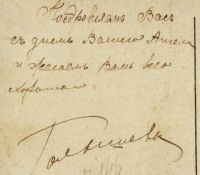 Поздравляем Васъ
съ днемъ Вашего Ангела
и желаем Вамъ всего
хорошаго.